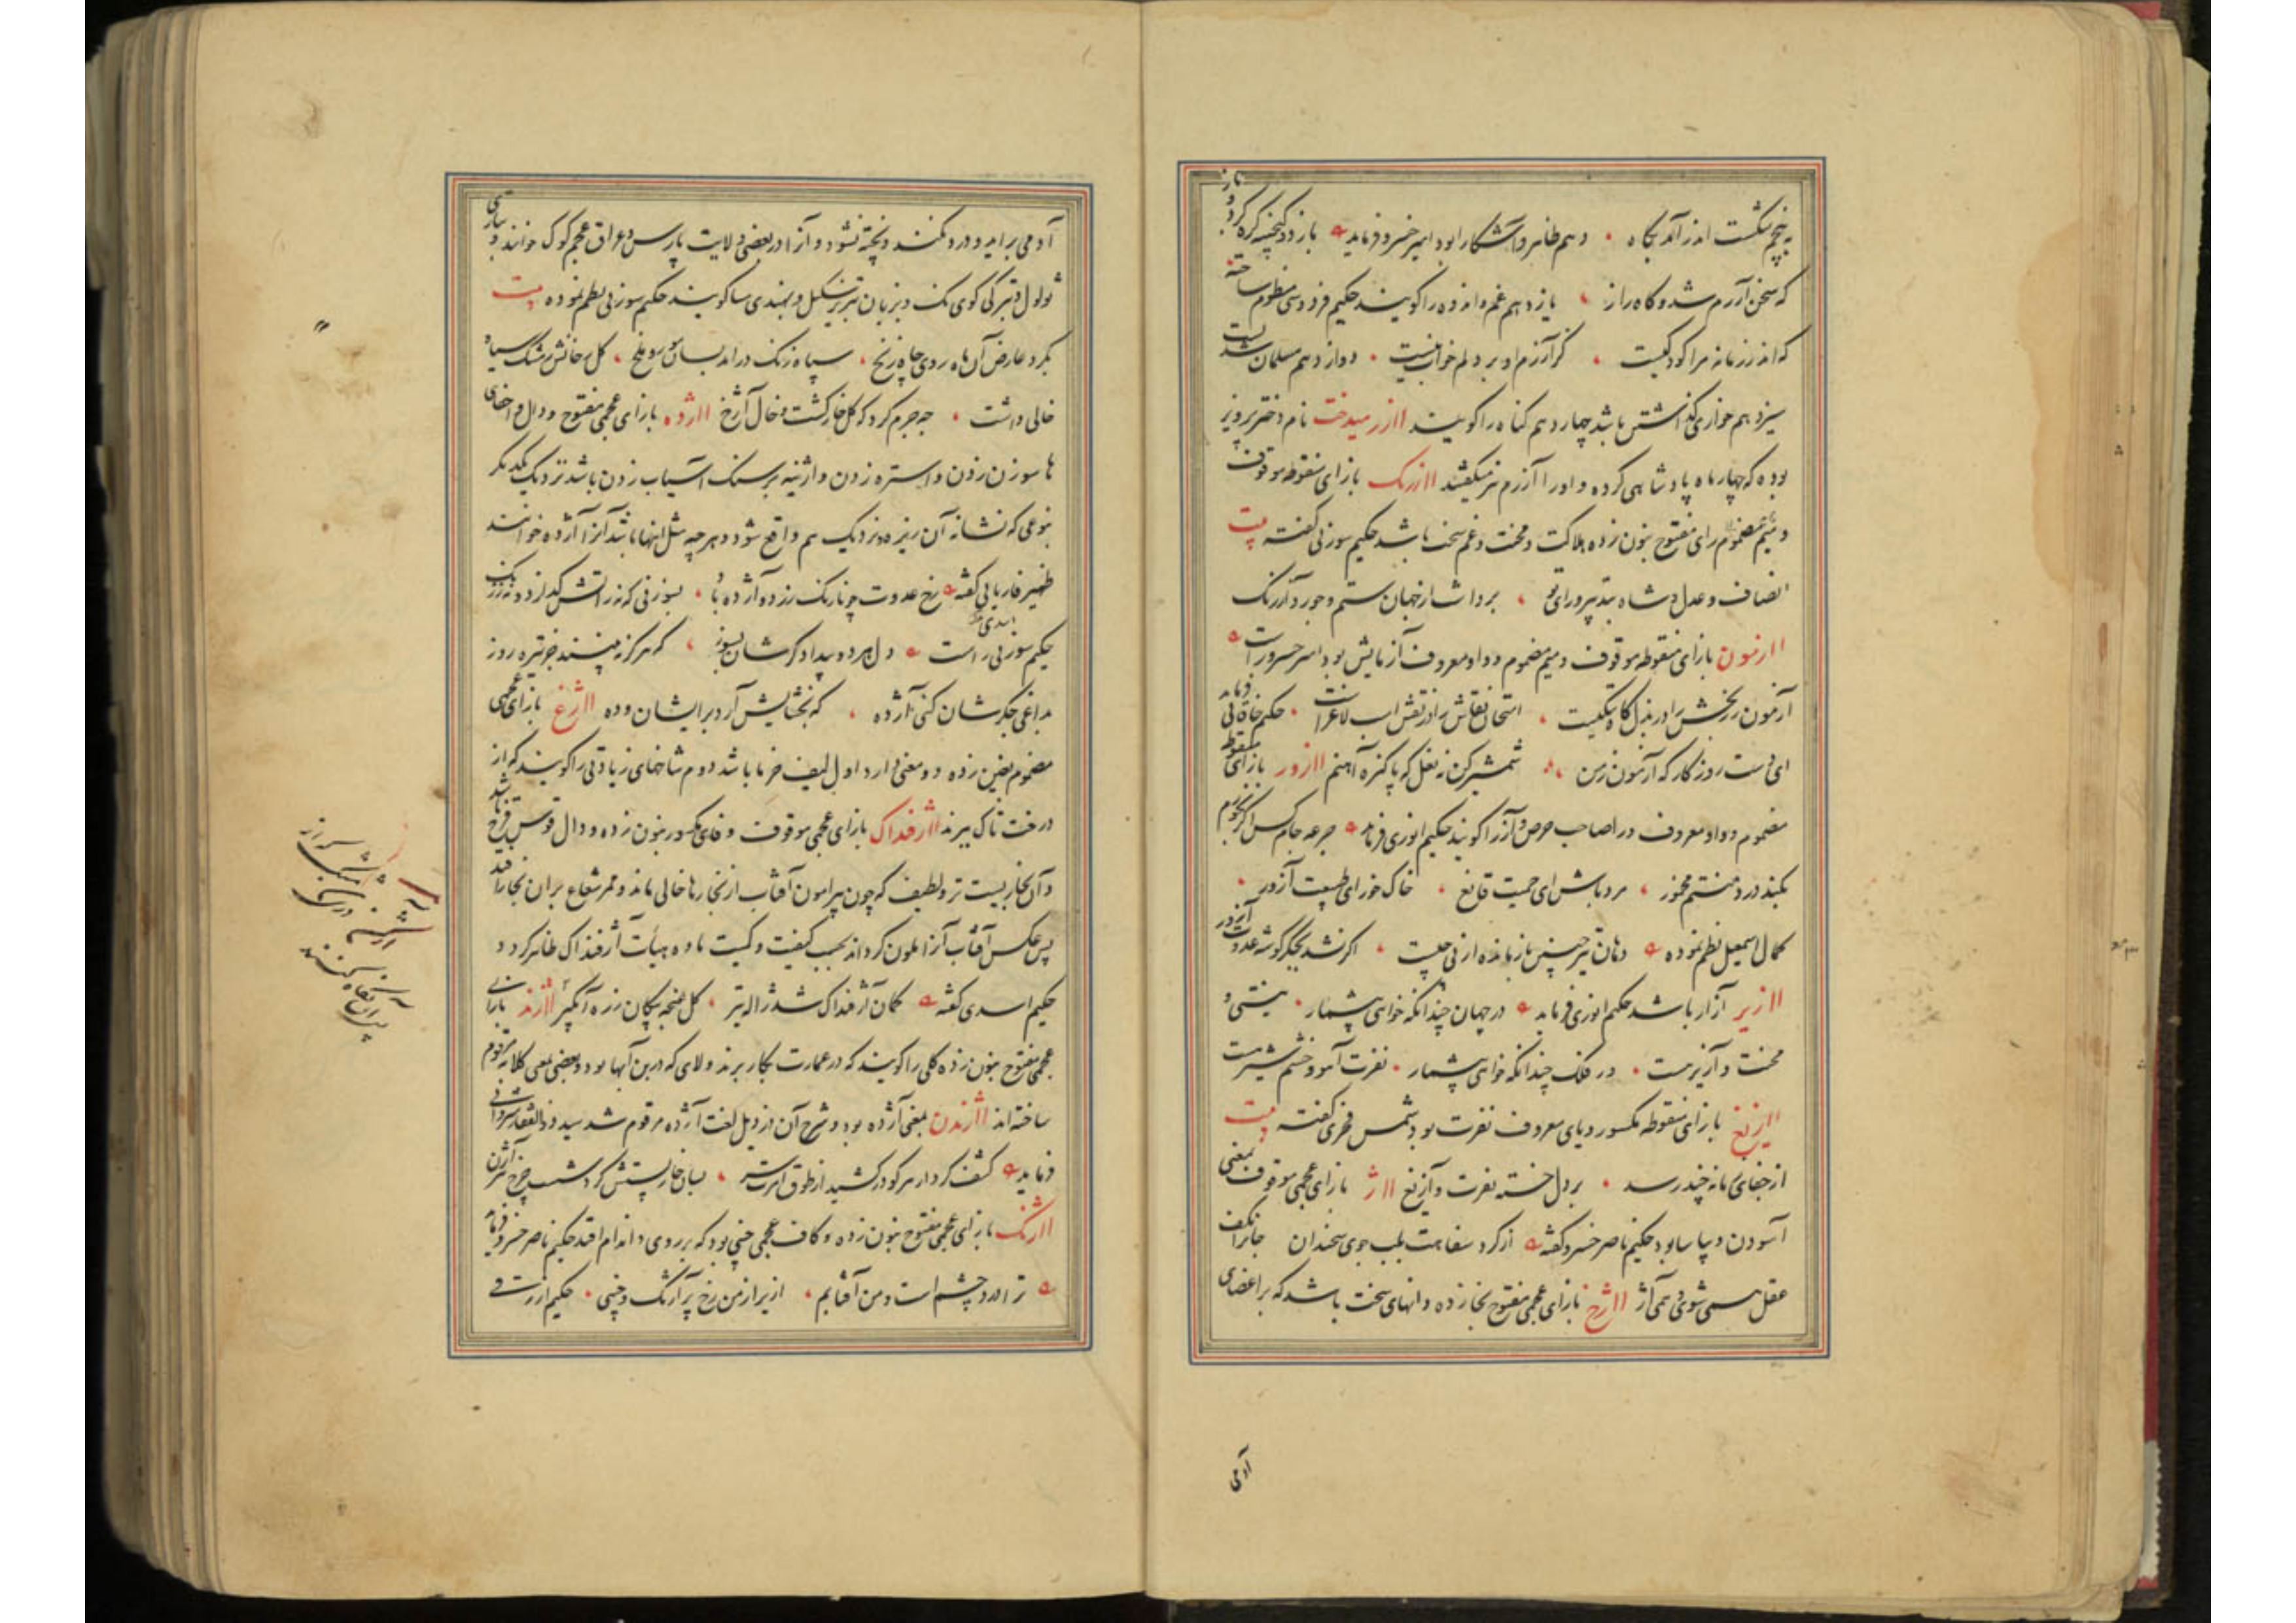 به پنجم شکست اندر آمد بگاه ، دهم ظاهر و آشکارا بود امیر خسرو فرماید باز در گنجینه گره کرد باز
که سخن آزرم شد و گاه راز ، یازدهم غم و اندوه را گویند حکیم فردوسی منظوم ساخته
که اندر زمانه مرا کودکیست ، کز آزرم او بر دلم خواب نیست ، دوازدهم مسلمان شد
سیزدهم خوار گذاشتن باشد چهاردهم گناه را گویند اازرمیدخت نام دختر پرویز
بوده که چهار ماه پادشاهی کرده و او را آزرم نیز میگفتند اازرنگ بازای منقوطه موقوف
و رای مفتوح بنون زده هلاکت و محنت و غم سخت باشد حکیم سوزنی گفته بیت
انصاف و عدل شاه بتدبیر و رای تو ، برداشت از جهان ستم و جور و آزرنگ
اازمون بازای منقوطه موقوف و میم مضموم و واو معروف آزمایش بود امیر خسرو راست
آزمون زربخش را در بذل کاه تنگیست ، امتحان نقاش را در نقش اسب لاغر است ، حکیم خاقانی فرماید
ای دست روزگار که آزمون ز من ، شمشیر کن نه نعل که پاکیزه آهنم اازور بازای منقوطه
مضموم و واو معروف در اصاحب حرص و آز را گویند حکیم انوری فرماید جرعه جام کس اگر نخورم
بکند درد منتم مخمور ، مرد باش ای حمیت قانع ، خاک خور ای طبیعت آزور ،
کمال اسمعیل نظم نموده دهان تیر چنین باز مانده از پی چیست ، اگر نشد بجگر گوشه عدوت آزور
اازیر آزار باشد حکیم انوری فرماید در جهان چندانکه خواهی بیشمار ، نیستی و
محنت و آزیر هست ، در فلک چندانکه خواهی بیشمار ، نفرت آهو و خشم شیر هست
اازیغ بازای منقوطه مکسور و یای معروف نفرت بود شمس فخری گفته بیت
از جفای زمانه چند رسد ، بر دل خسته نفرت و آزیغ ااژ بازای عجمی موقوف بمعنی
آسودن و بیاسا بود حکیم ناصر خسرو گفته از گرد سفاهت بلب جوی سخندان جانرا بکف
عقل همی شوی و همی آژ ااژخ بازای عجمی مفتوح بخا زده دانهای سخت باشد که بر اعضای
آدمی
آدمی برآید و درد نکند و پخته نشود و آنرا در بعضی ولایت پارس و عراق عجم گوک خوانند و بتازی
ثولول و بترکی کوی نک و بزبان تبریز سکیل و بهندی مسا گویند حکیم سوزنی نظم نموده بیت
بگرد عارض آن ماه روی چاه زنخ ، سپاه زنگ درآمد بسان مور و ملخ ، گل خانش مشک سیاه
خالی داشت ، چه جرم کرد که گل خار گشت و خال آژخ ااژده بازای عجمی مفتوح و دال و اخفای
ها سوزن زدن و استره زدن و اژینه بر سنگ آسیاب زدن باشد نزدیک یکدیگر
بنوعی که نشانه آن ریزه و نزدیک هم واقع شود و هر چه مثل اینها باشد آنرا آژده خوانند
ظهیر فاریابی گفته رخ عدوت چو نارنگ زرد و آژده باد ، بسوزنی که نه زاتش گدازد و نه ز زنگ
حکیم سوزنی راست دل هر دو بیدادگر شان بسوز ، که هرگز نبینند جز تیره روز
بداغی جگرشان کنی آژده ، که بخشایش آرد بر ایشان دده ااژغ بازای عجمی
مضموم بغین زده دو معنی دارد اول لیف خرما باشد دوم شاخهای زیادتی را گویند که از
درخت تاک ببرند ااژفنداک بازای عجمی موقوف و فای مکسور بنون زده و دال قوس قزح باشد
و آن بخاریست تر و لطیف که چون پیرامون آفتاب از بخارها خالی ماند و ممر شعاع بر آن بخار افتد
پس عکس آفتاب آنرا ملون گرداند بحسب کیفیت و کمیت ماده و هیأت آژفنداک ظاهر گردد
حکیم اسدی گفته کمان آژفنداک شد ژاله تیر ، گل غنچه پیکان زره آبگیر ااژند بازای
عجمی مفتوح بنون زده گلی را گویند که در عمارت بکار برند و لای که در بن آبها بود و بعضی بمعنی کلابه مرقوم
ساخته اند ااژندن بمعنی آژده بود و شرح آن در ذیل لغت آژده مرقوم شد سید ذوالفقار شروانی
فرماید کشف کردار سر گو در کشید از طوق امرت سر ، بسان خارپشتش کرد شست چرخ تیر آژن
ااژنگ بازای عجمی مفتوح بنون زده و کاف عجمی چینی بود که بر روی و اندام افتد حکیم ناصر خسرو فرماید
ترا درد چشم است و من آفتابم ، ازیرا ز من رخ پر آژنگ و چینی ، حکیم ازرقی